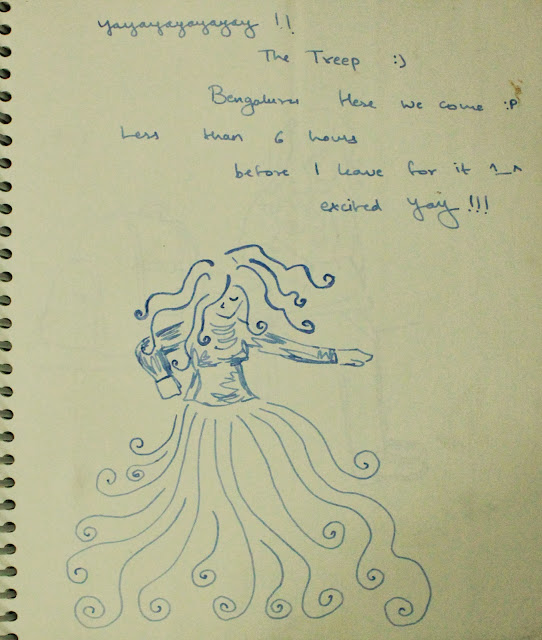 yayayayayayay !!
The Treep :)
Bengaluru Here we come :P
Less than 6 hours
before I leave for it ^_^
excited yay !!!